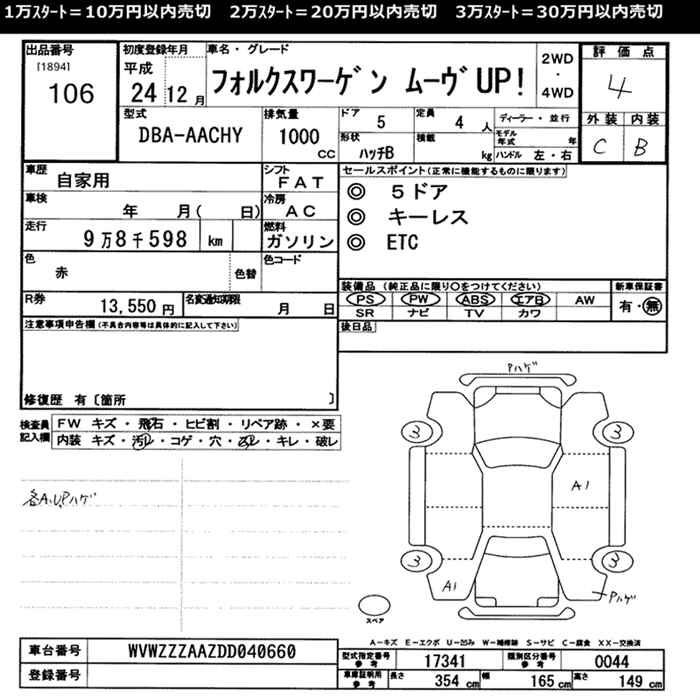 1万スタート=10万円以内売切 2万スタート=20万円以内売切 3万スタート=30万円以内売切
出品番号
[1894]
106
初度登録年月
平成
24 12 月
車名・グレード
フォルクスワーゲン ムーヴUP!
2WD
・
4WD
評価点
4
型式
DBA-AACHY
排気量
1000
CC
ドア
5
定員
4 人
ディーラー・並行
モデル年式 年
形状
ハッチB
積載
kg
ハンドル 左・右
外装 内装
C B
車歴
自家用
シフト
FAT
車検
年 月( 日)
冷房
AC
走行
9万8千598 km
燃料
ガソリン
色
赤
色替
色コード
R券
13,550 円
名変通知期限
月 日
セールスポイント(正常に機能するものに限ります)
◎ 5ドア
◎ キーレス
◎ ETC
装備品(純正品に限り○をつけてください)
PS PW ABS エアB AW
SR ナビ TV カワ
新車保証書
有・無
後日品
注意事項申告欄(不具合内容等は具体的に記入して下さい)
修復歴 有〔箇所 〕
検査員
記入欄
FW キズ・飛石・ヒビ割・リペア跡・×要
内装 キズ・汚レ・コゲ・穴・ ・キレ・破レ
各A.U.Pハゲ
Pハゲ
3 3
A1
3 3
A1
Pハゲ
スペア
A-キズ E-エクボ U-凹み W-補修跡 S-サビ C-腐食 XX-交換済
車台番号
WVWZZZAAZDD040660
登録番号
型式指定番号
参考
17341
類別区分番号
参考
0044
車庫証明用
参考
長さ 354 cm 幅 165 cm 高さ 149 cm